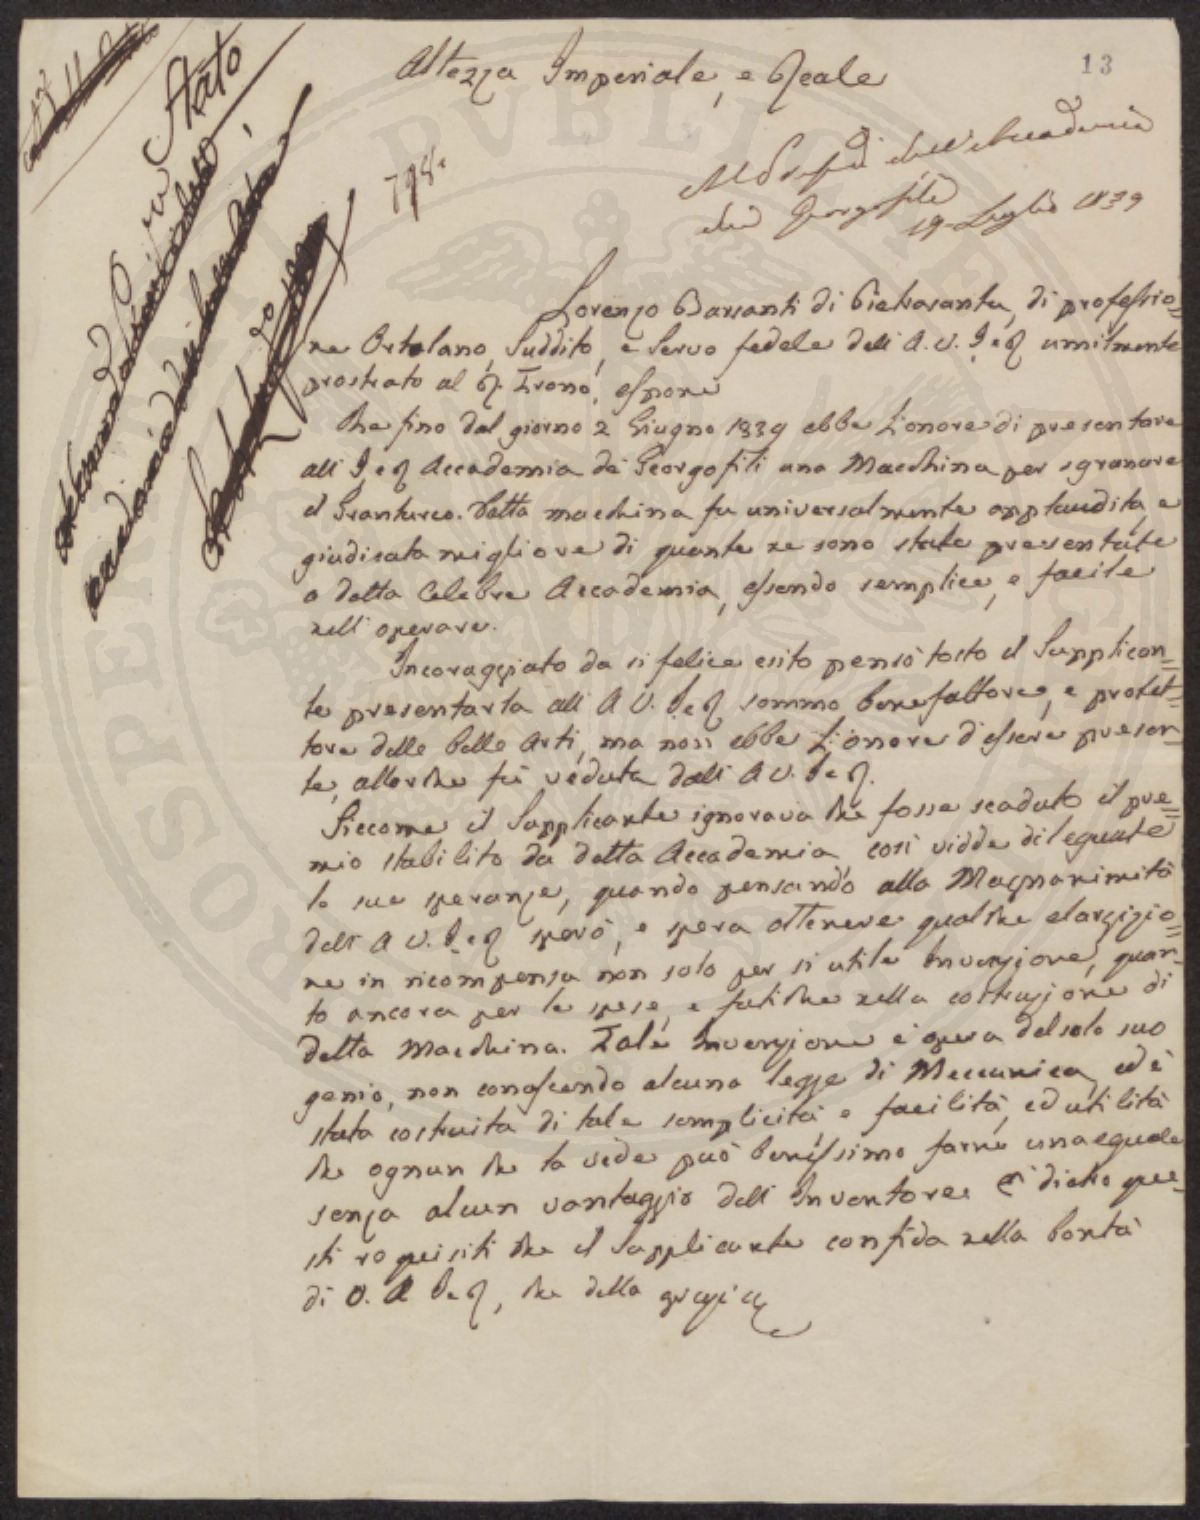 13
Altezza Imperiale, e Reale
Stato
798.
Al Presid. dell'Accademia
dei Georgofili
19 Luglio 1839
Lorenzo Barsanti di Pietrasanta, di professio=
ne Ortolano, Suddito, e Servo fedele dell' A. V. I. e R. umilmente
prostrato al R. Trono, espone
Che fino dal giorno 2 Giugno 1839 ebbe l'onore di presentare
all' I. e R. Accademia de' Georgofili una Macchina per sgranare
il Granturco. Detta macchina fu universalmente applaudita, e
giudicata migliore di quante ne sono state presentate
a detta Celebre Accademia, essendo semplice, e facile
nell' operare.
Incoraggiato da si felice esito pensò tosto il Supplican=
te presentarla all' A. V. I. e R. sommo benefattore, e protet=
tore delle belle Arti, ma non ebbe l'onore d'essere presen=
te, allorche fù veduta dall' A. V. I. e R.
Siccome il Supplicante ignorava che fosse scaduto il pre=
mio stabilito da detta Accademia, così vidde dileguate
le sue speranze, quando pensando alla Magnanimità
dell' A. V. I. e R. sperò, e spera ottenere qualche elargizio=
ne in ricompensa non solo per si utile Invenzione, quan=
to ancora per le spese, e fatiche nella costruzione di
detta Macchina. Tale Invenzione è opera del solo suo
genio, non conoscendo alcuna legge di Meccanica, ed è
stata costruita di tale semplicità, e facilità, ed utilità
che ognun che la vede può benissimo farne una eguale
senza alcun vantaggio dell' Inventore. E' dietro que=
sti requisiti che il Supplicante confida nella bontà
di V. A. I. e R., che della grazia